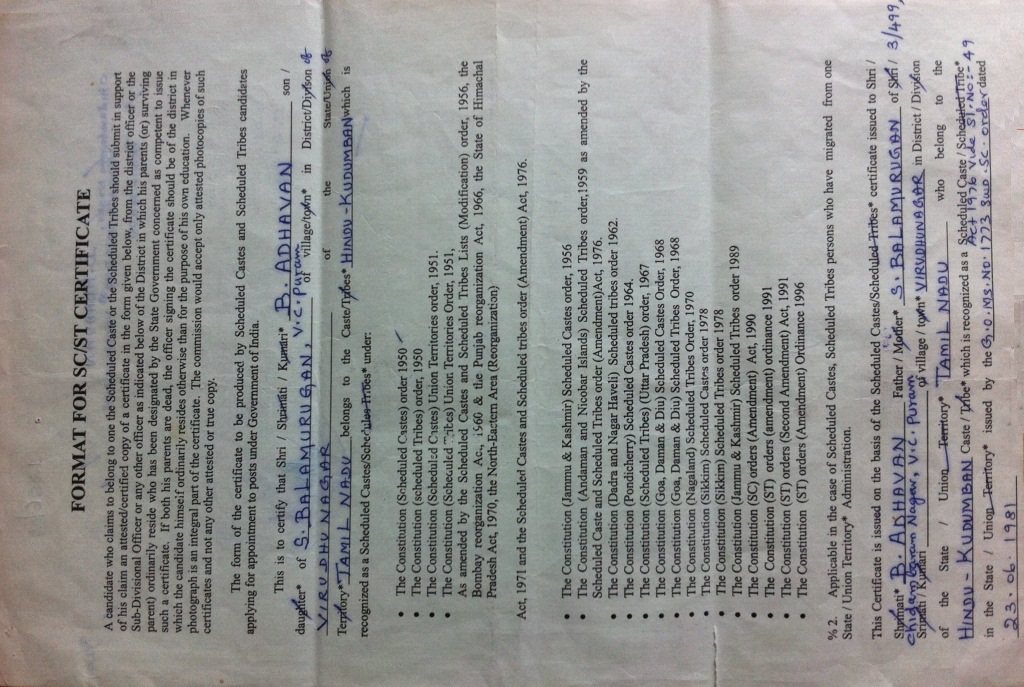 FORMAT FOR SC/ST CERTIFICATE
A candidate who claims to belong to one the Scheduled Caste or the Scheduled Tribes should submit in support
of his claim an attested/certified copy of a certificate in the form given below, from the district officer or the
Sub-Divisional Officer or any other officer as indicated below of the District in which his parents (or) surviving
parent) ordinarily reside who has been designated by the State Government concerned as competent to issue
such a certificate. If both his parents are dead, the officer signing the certificate should be of the district in
which the candidate himself ordinarily resides otherwise than for the purpose of his own education. Whenever
photograph is an integral part of the certificate. The commission would accept only attested photocopies of such
certificates and not any other attested or true copy.
The form of the certificate to be produced by Scheduled Castes and Scheduled Tribes candidates
applying for appointment to posts under Government of India.
This is to certify that Shri / Shrimati / Kumari* B. ADHAVAN son /
daughter* of S. BALAMURUGAN, V.C. Puram of village/town* in District/Divison of
VIRUDHUNAGAR of the State/Union of
Territory* TAMIL NADU belongs to the Caste/Tribes* HINDU - KUDUMBAN which is
recognized as a Scheduled Castes/Schedules Tribes* under:
• The Constitution (Scheduled Castes) order 1950
• The Constitution (scheduled Tribes) order, 1950
• The Constitution (Scheduled Castes) Union Territories order, 1951.
• The Constitution (Scheduled Tribes) Union Territories Order, 1951,
As amended by the Scheduled Castes and Scheduled Tribes Lists (Modification) order, 1956, the
Bombay reorganization Act, 1960 & the Punjab reorganization Act, 1966, the State of Himachal
Pradesh Act, 1970, the North-Eastern Area (Reorganization)
Act, 1971 and the Scheduled Castes and Scheduled tribes order (Amendment) Act, 1976.
• The Constitution (Jammu & Kashmir) Scheduled Castes order, 1956
• The Constitution (Andaman and Nicobar Islands) Scheduled Tribes order,1959 as amended by the
Scheduled Caste and Scheduled Tribes order (Amendment)Act, 1976.
• The Constitution (Dadra and Nagar Haveli) Scheduled tribes order 1962.
• The Constitution (Pondicherry) Scheduled Castes order 1964.
• The Constitution (Scheduled Tribes) (Uttar Pradesh) order, 1967
• The Constitution (Goa, Daman & Diu) Scheduled Castes Order, 1968
• The Constitution (Goa, Daman & Diu) Scheduled Tribes Order, 1968
• The Constitution (Nagaland) Scheduled Tribes Order, 1970
• The Constitution (Sikkim) Scheduled Castes order 1978
• The Constitution (Sikkim) Scheduled Tribes order 1978
• The Constitution (Jammu & Kashmir) Scheduled Tribes order 1989
• The Constitution (SC) orders (Amendment) Act, 1990
• The Constitution (ST) orders (amendment) ordinance 1991
• The Constitution (ST) orders (Second Amendment) Act, 1991
• The Constitution (ST) orders (Amendment) Ordinance 1996
% 2. Applicable in the case of Scheduled Castes, Scheduled Tribes persons who have migrated from one
State / Union Territory* Administration.
This Certificate is issued on the basis of the Scheduled Castes/Scheduled Tribes* certificate issued to Shri /
Shrimati* B. ADHAVAN Father / Mother* S. BALAMURUGAN of Shri / 3/499,
Chidambaram Nagar, V.C. Puram
Srimati / Kumari of village / town* VIRUDHUNAGAR in District / Division
of the State / Union Territory* TAMIL NADU who belong to the
HINDU - KUDUMBAN Caste / Tribe* which is recognized as a Scheduled Caste / Scheduled Tribe*
Act 1976 Vide Sl. No:- 49
in the State / Union Territory* issued by the G.O. MS. NO. 1773 SWD. SC. order dated
23. 06. 1981